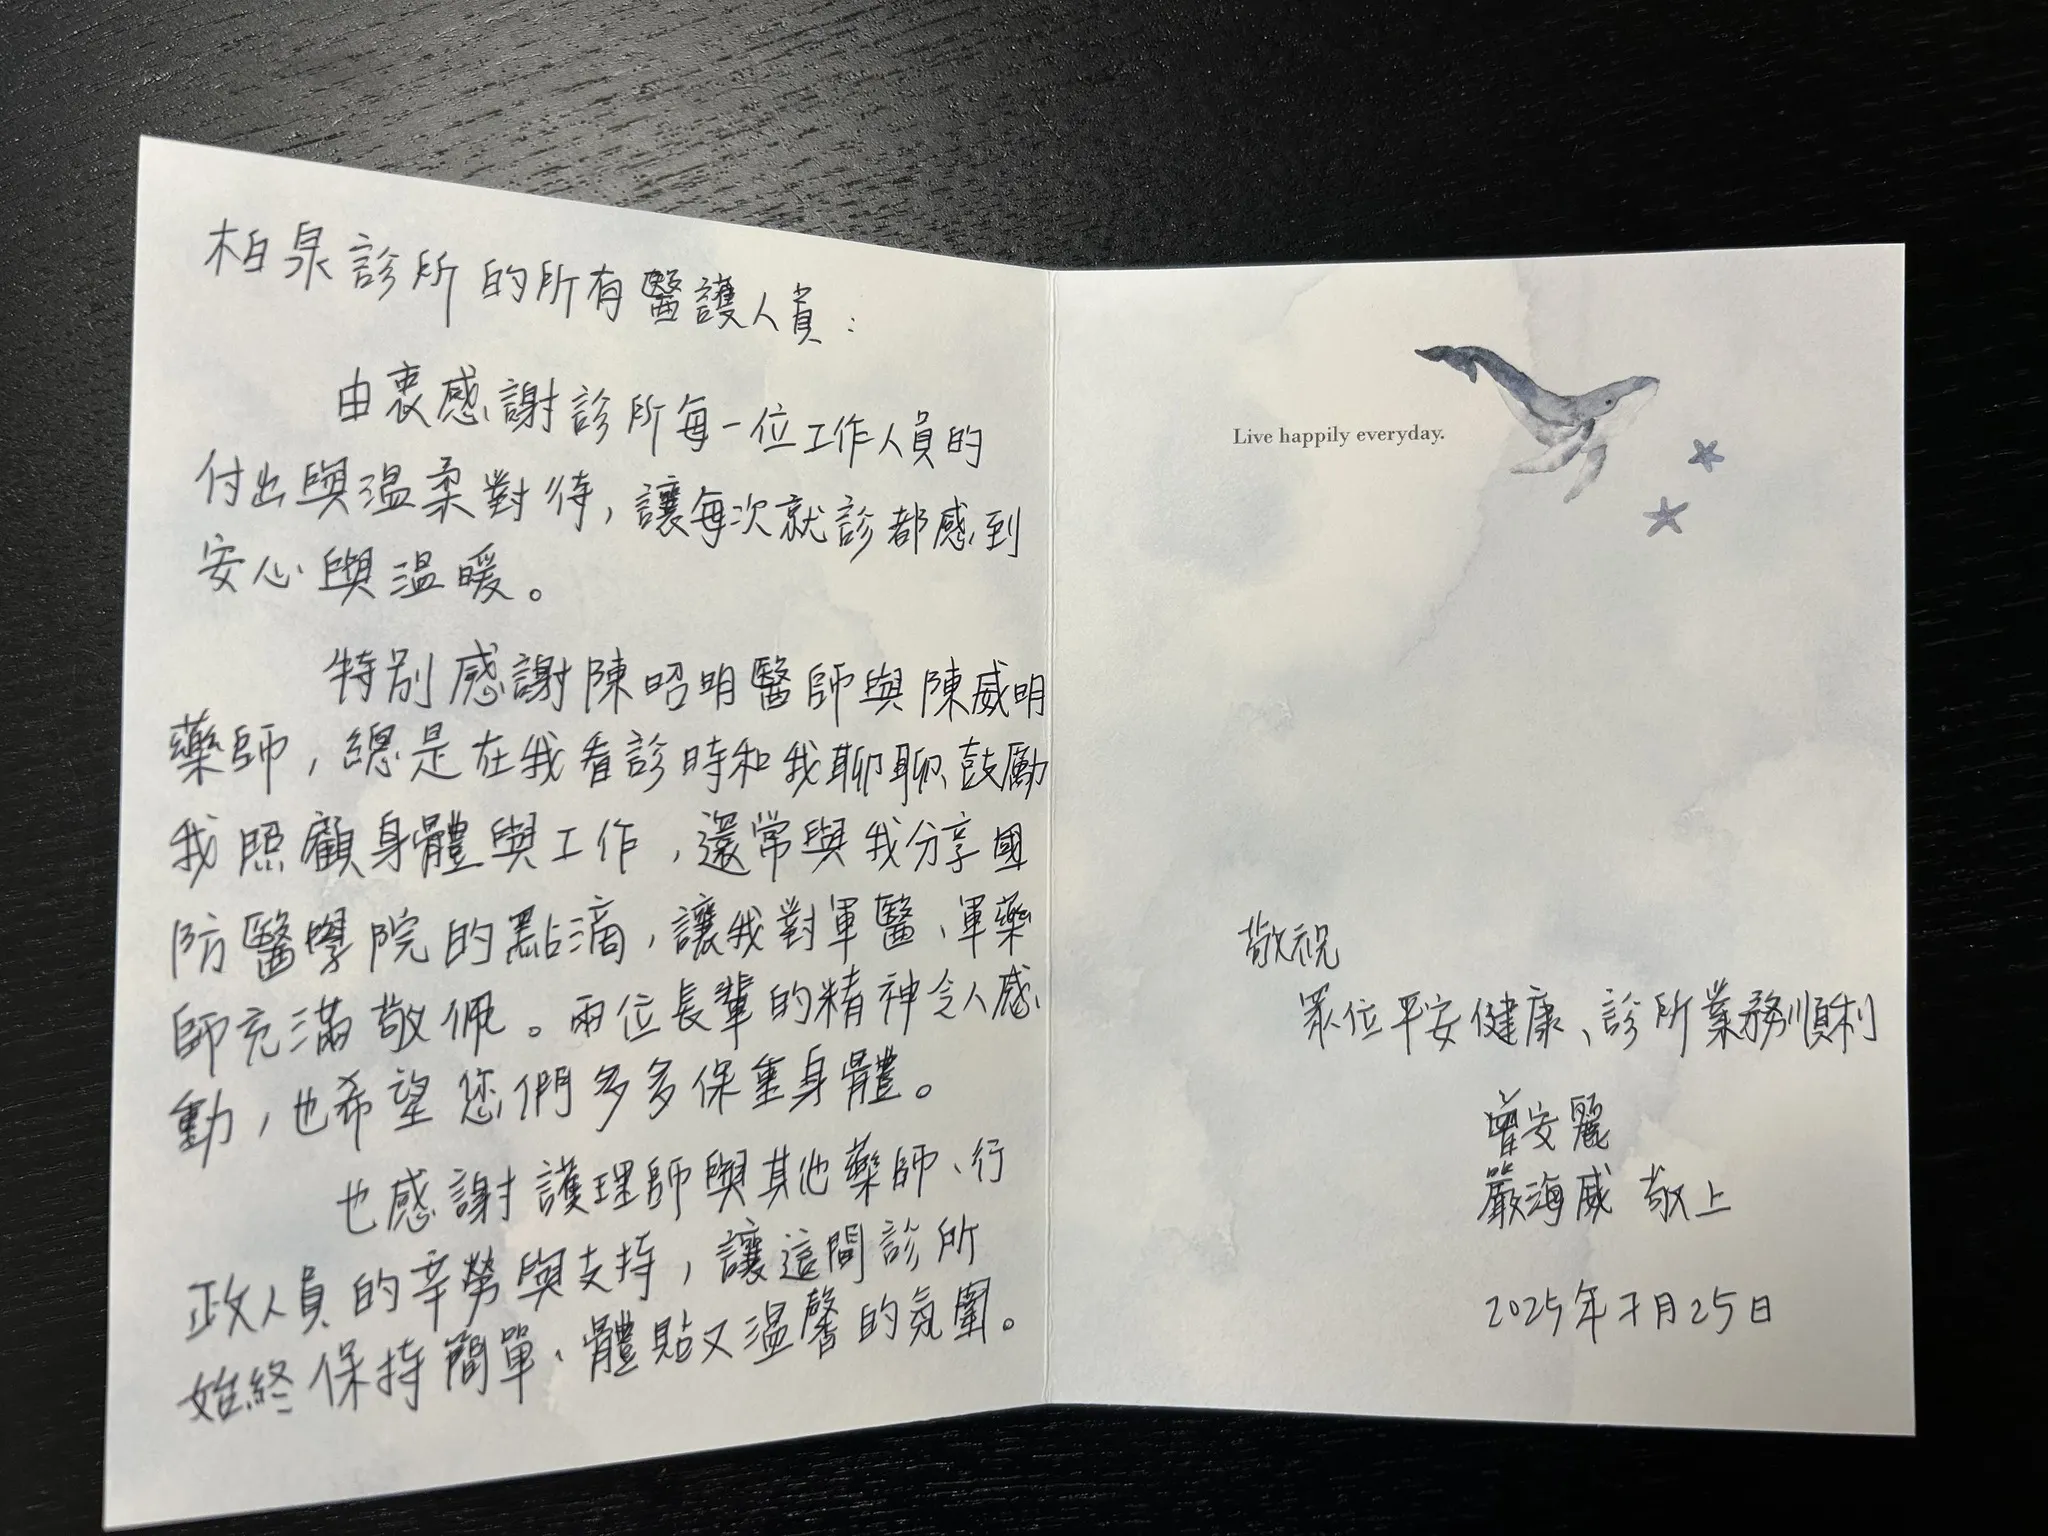 柏泉診所的所有醫護人員:
由衷感謝診所每一位工作人員的
付出與溫柔對待,讓每次就診都感到
安心與溫暖。
特別感謝陳昭明醫師與陳威明
藥師,總是在我看診時和我聊聊、鼓勵
我照顧身體與工作,還常與我分享國
防醫學院的點滴,讓我對軍醫、軍藥
師充滿敬佩。兩位長輩的精神令人感
動,也希望您們多多保重身體。
也感謝護理師與其他藥師、行
政人員的辛勞與支持,讓這間診所
始終保持簡單、體貼又溫馨的氛圍。
Live happily everyday.
敬祝
眾位平安健康、診所業務順利
曾安麗
嚴海威 敬上
2025年7月25日